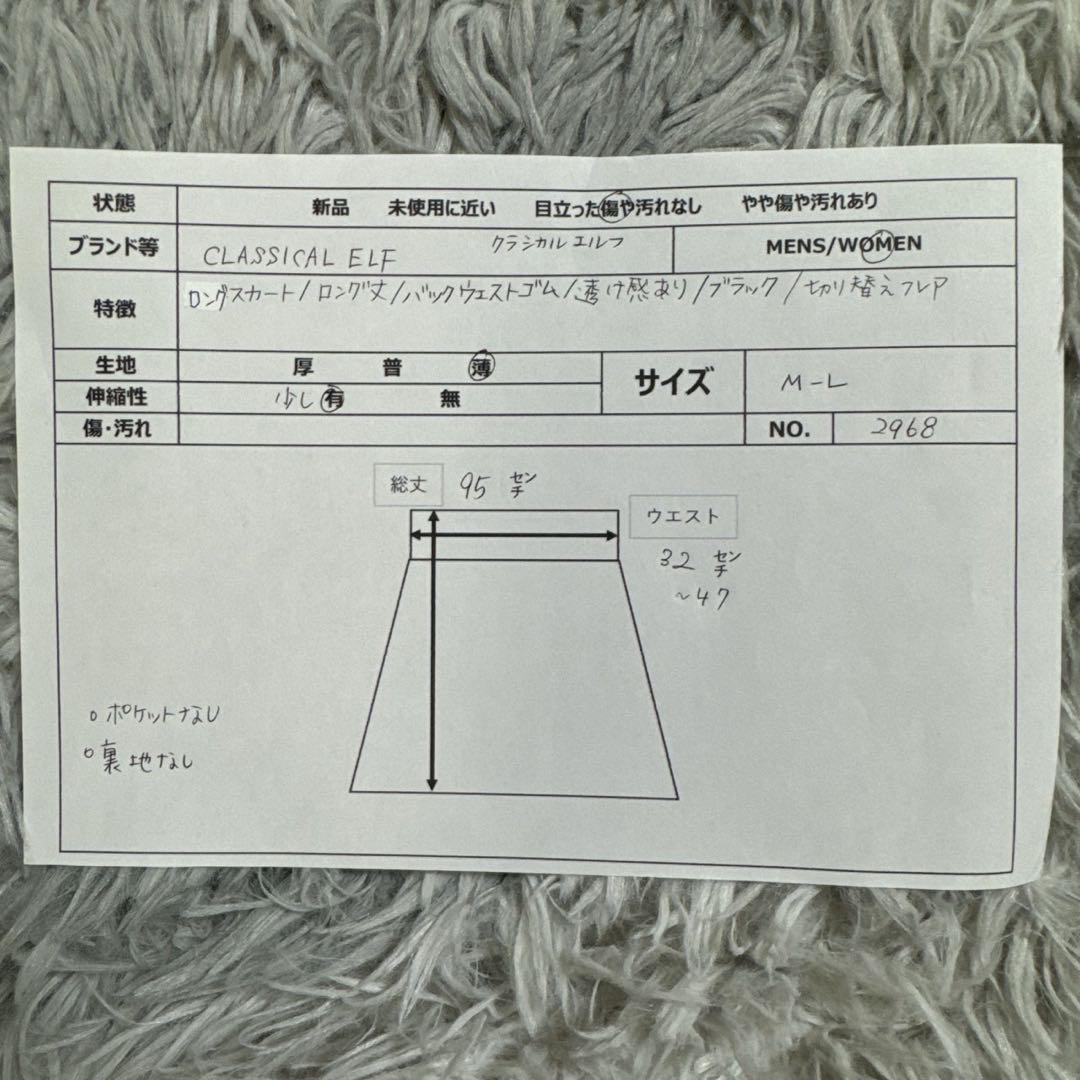 状態 新品 未使用に近い 目立った傷や汚れなし やや傷や汚れあり
ブランド等 CLASSICAL ELF クラシカルエルフ MENS/WOMEN
特徴 ロングスカート/ロング丈/バックウエストゴム/透け感あり/ブラック/切り替えフレア
生地 厚 普 薄
サイズ M-L
伸縮性 少し有 無
傷・汚れ NO. 2968
総丈 95 センチ
ウエスト
32 センチ
~47
○ポケットなし
○裏地なし